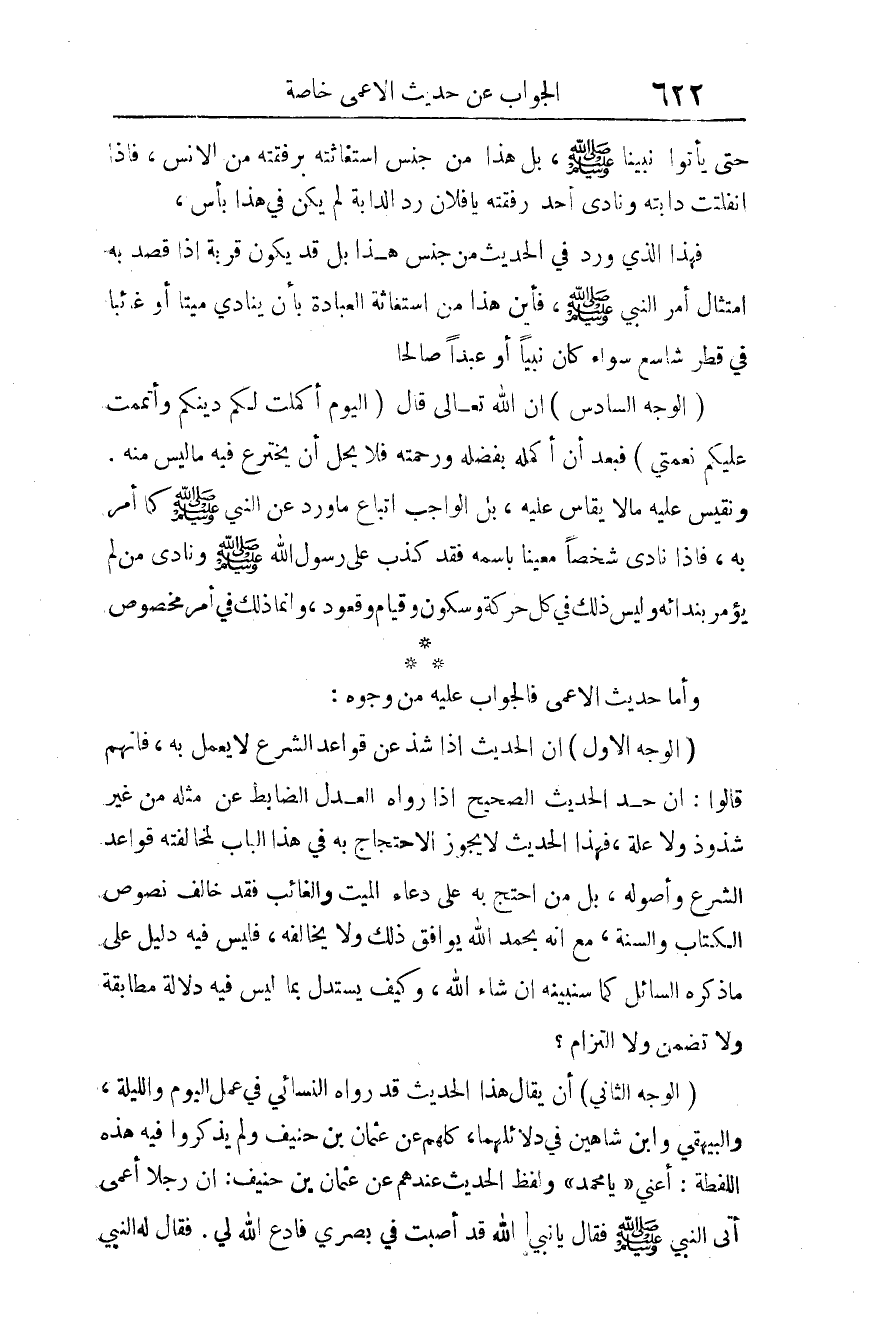 ٦٢٢ الجواب عن حديث الاعمى خاصة
حتى يأتوا نبينا ﷺ ، بل هذا من جنس استغاثته برفقته من الانس ، فاذا
انفلتت دابته ونادى أحد رفقته يافلان رد الدابة لم يكن في هذا بأس ،
فهذا الذي ورد في الحديث من جنس هـذا بل قد يكون قربة اذا قصد به
امتثال أمر النبي ﷺ ، فأين هذا من استغاثة العبادة بأن ينادي ميتا أو غائبا
في قطر شاسع سواء كان نبياً أو عبداً صالحا
( الوجه السادس ) ان الله تعـالى قال ( اليوم أكملت لكم دينكم وأتممت
عليكم نعمتي ) فبعد أن أكمله بفضله ورحمته فلا يحل أن يخترع فيه ماليس منه .
ونقيس عليه مالا يقاس عليه ، بل الواجب اتباع ماورد عن النبي ﷺ كما أمر
به ، فاذا نادى شخصاً معينا باسمه فقد كذب على رسول الله ﷺ ونادى من لم
يؤمر بندائه وليس ذلك في كل حركة وسكون وقيام وقعود ، وانما ذلك في أمر مخصوص
*
* *
وأما حديث الاعمى فالجواب عليه من وجوه :
( الوجه الاول ) ان الحديث اذا شذ عن قواعد الشرع لايعمل به ، فانهم
قالوا : ان حـد الحديث الصحيح اذا رواه العـدل الضابط عن مثله من غير
شذوذ ولا علة ، فهذا الحديث لايجوز الاحتجاج به في هذا الباب لمخالفته قواعد
الشرع وأصوله ، بل من احتج به على دعاء الميت والغائب فقد خالف نصوص
الكتاب والسنة ، مع انه بحمد الله يوافق ذلك ولا يخالفه ، فليس فيه دليل على
ماذكره السائل كما سنبينه ان شاء الله ، وكيف يستدل بما ليس فيه دلالة مطابقة
ولا تضمن ولا التزام ؟
( الوجه الثاني ) أن يقال هذا الحديث قد رواه النسائي في عمل اليوم والليلة ،
والبيهقي وابن شاهين في دلائلهما ، كلهم عن عثمان بن حنيف ولم يذكروا فيه هذه
اللفطة : أعني « يامحمد » ولفظ الحديث عندهم عن عثمان بن حنيف : ان رجلا أعمى
أتى النبي ﷺ فقال يانبي الله قد أصبت في بصري فادع الله لي . فقال له النبي